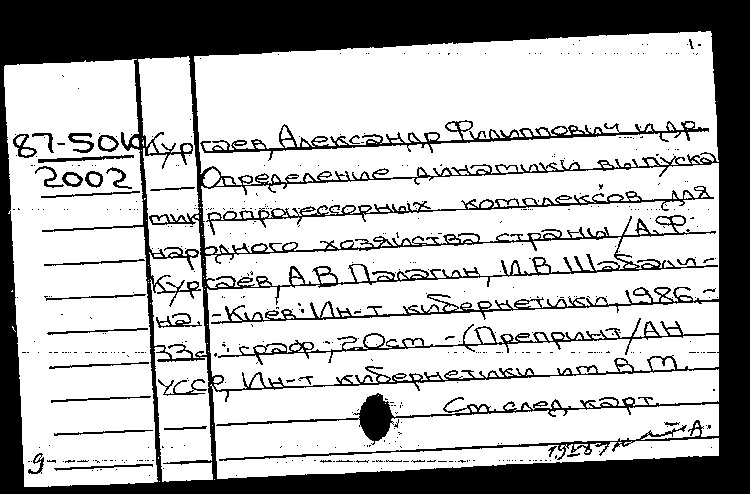 1.
87-5010 Кургаев, Александр Филиппович и др.
2002 Определение динамики выпуска
микропроцессорных комплексов для
народного хозяйства страны /А.Ф.
Кургаев, А.В Палагин, И.В Шабали-
на. -Киев: Ин-т кибернетики, 1986.-
33с.: граф.; 20см. - (Препринт/АН
УССР, Ин-т кибернетики им В М.
См. след. карт.
9